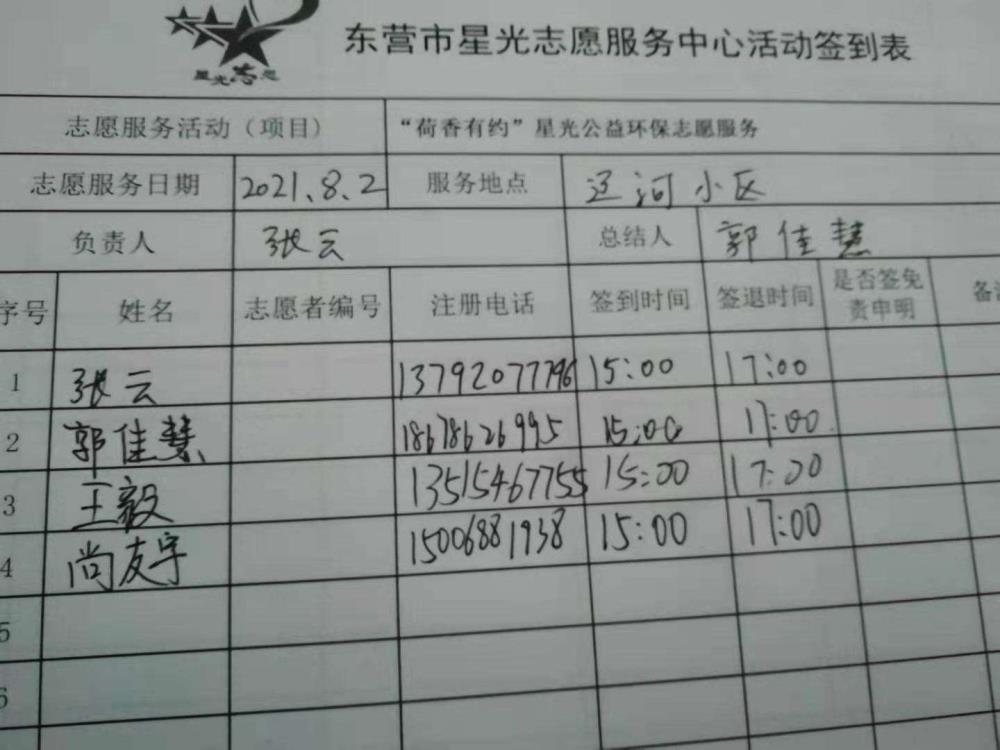 星光志愿
东营市星光志愿服务中心活动签到表
志愿服务活动（项目） “荷香有约”星光公益环保志愿服务
志愿服务日期 2021.8.2 服务地点 辽河小区
负责人 张云 总结人 郭佳慧
序号 姓名 志愿者编号 注册电话 签到时间 签退时间 是否签免责申明 备注
1 张云 13792077796 15:00 17:00
2 郭佳慧 18678626995 15:00 17:00
3 王毅 13515467755 15:00 17:00
4 尚友宇 15006881938 15:00 17:00
5
6